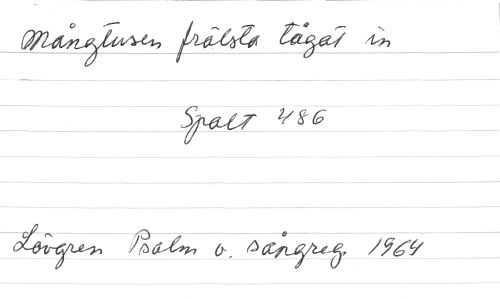 Mångtusen frälsta tågat in
Spalt 486
Lövgren Psalm o. sångreg. 1964